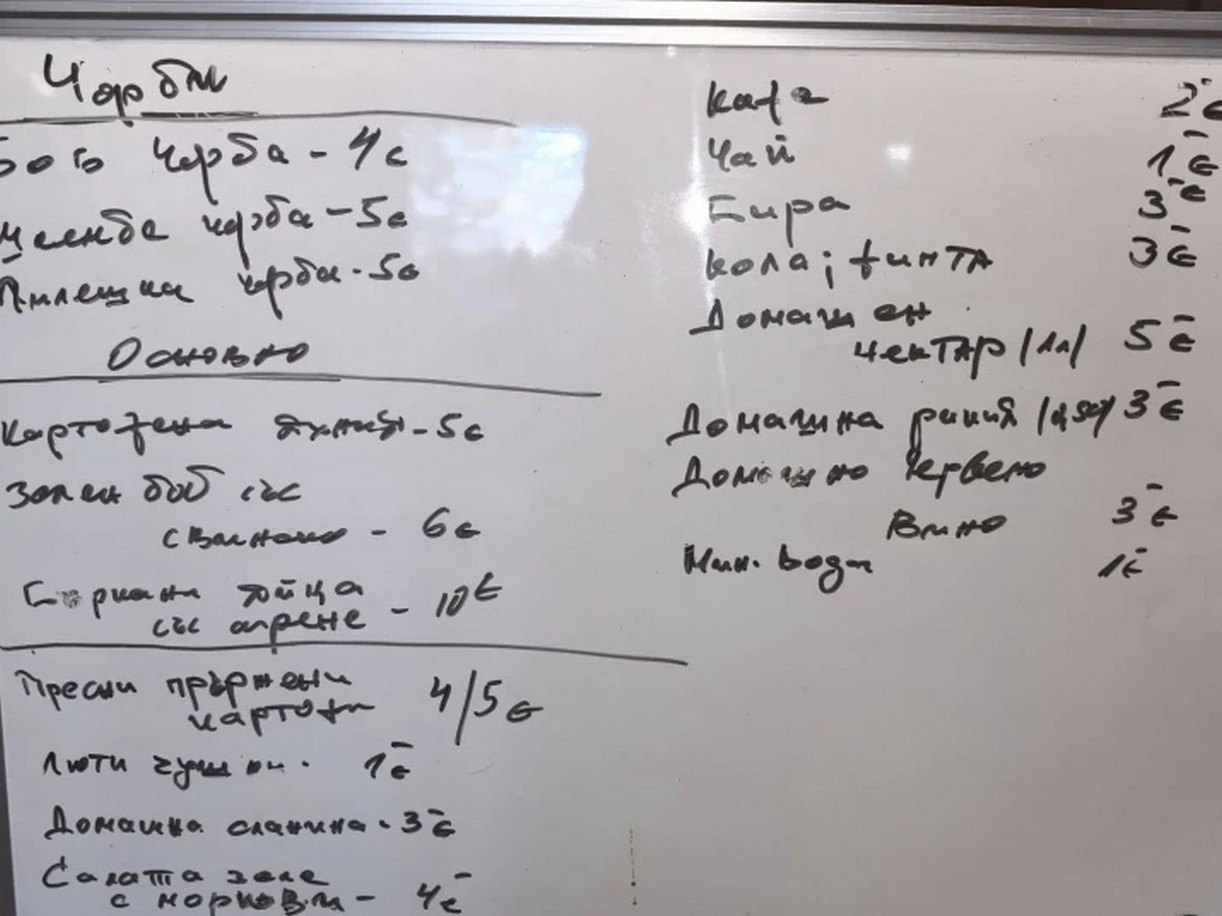 Чорби
Боб чорба - 4€
чорба - 5€
Пилешка чорба - 5€
Основно
Картофена яхния - 5€
Зелен боб със
свинско - 6€
Бъркани яйца
със сирене - 10€
Пресни пържени
картофи 4/5€
Люти чушки - 1€
Домашна сланина - 3€
Салата зеле
с моркови - 4€
Кафе 2€
Чай 1€
Бира 3€
Кола; финта 3€
Домашен
нектар /1л/ 5€
Домашна ракия 3€
Домашно червено
вино 3€
Мин. вода 1€